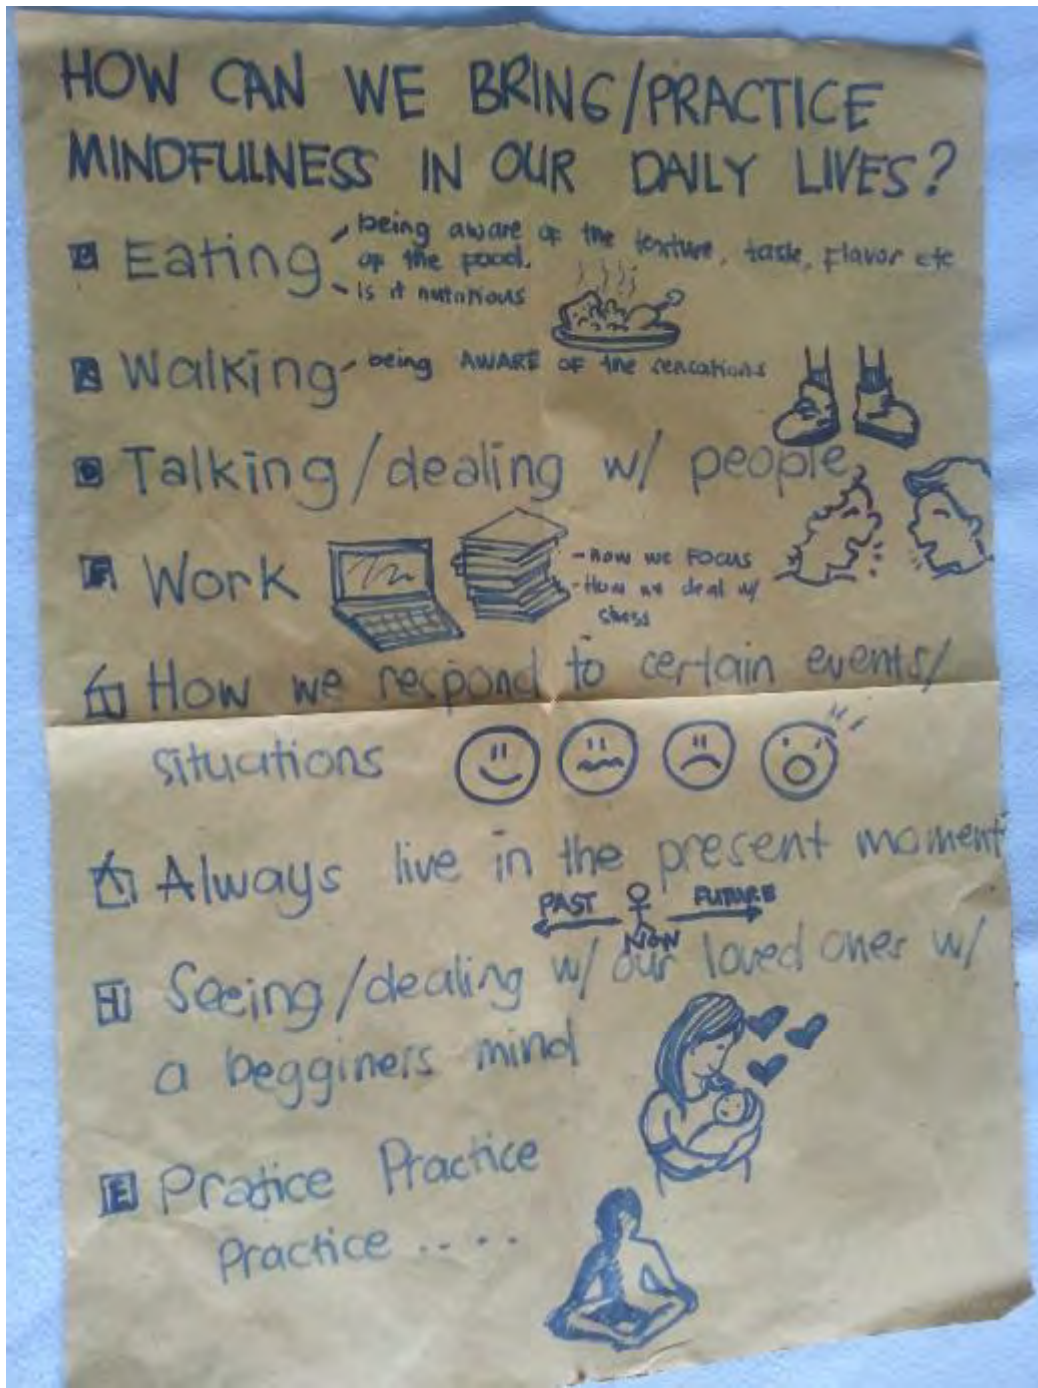 HOW CAN WE BRING/PRACTICE
MINDFULNESS IN OUR DAILY LIVES?
Eating - being aware of the texture, taste, flavor etc
of the food.
- is it nutritious
Walking - being AWARE OF the sensations
Talking/dealing w/ people
Work
- How we FOCUS
- How we deal w/
stress
How we respond to certain events/
situations
Always live in the present moment
PAST FUTURE
NOW
Seeing/dealing w/ our loved ones w/
a begginers mind
Pratice Practice
Practice ....